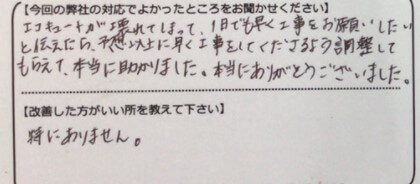 【今回の弊社の対応でよかったところをお聞かせください】
エコキュートが壊れてしまって、1日でも早く工事をお願いしたい
と伝えたら、予想以上に早く工事をしてくださるよう調整して
もらえて、本当に助かりました。本当にありがとうございました。
【改善した方がいい所を教えて下さい】
特にありません。